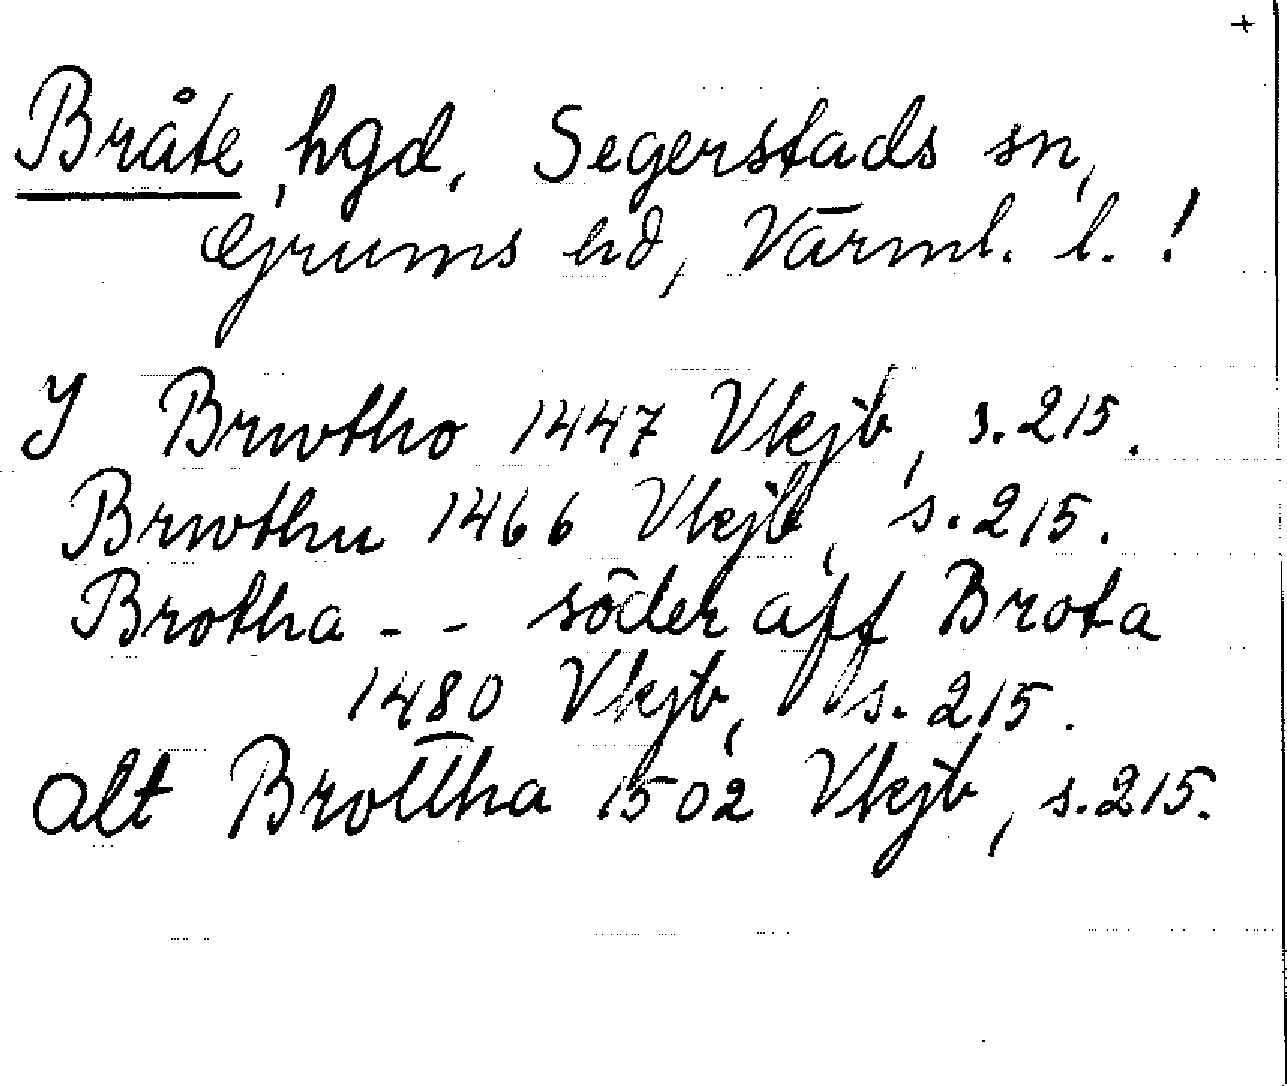 +
Bråte, hgd, Segerstads sn,
Grums hd, Värml. l. !
Y Brwtho 1447 Vkjb, s. 215.
Brwthu 1466 Vkjb, s. 215.
Brotha - - söder aff Brota
1480 Vkjb, s. 215.
alt Brottha 1502 Vkjb, s. 215.